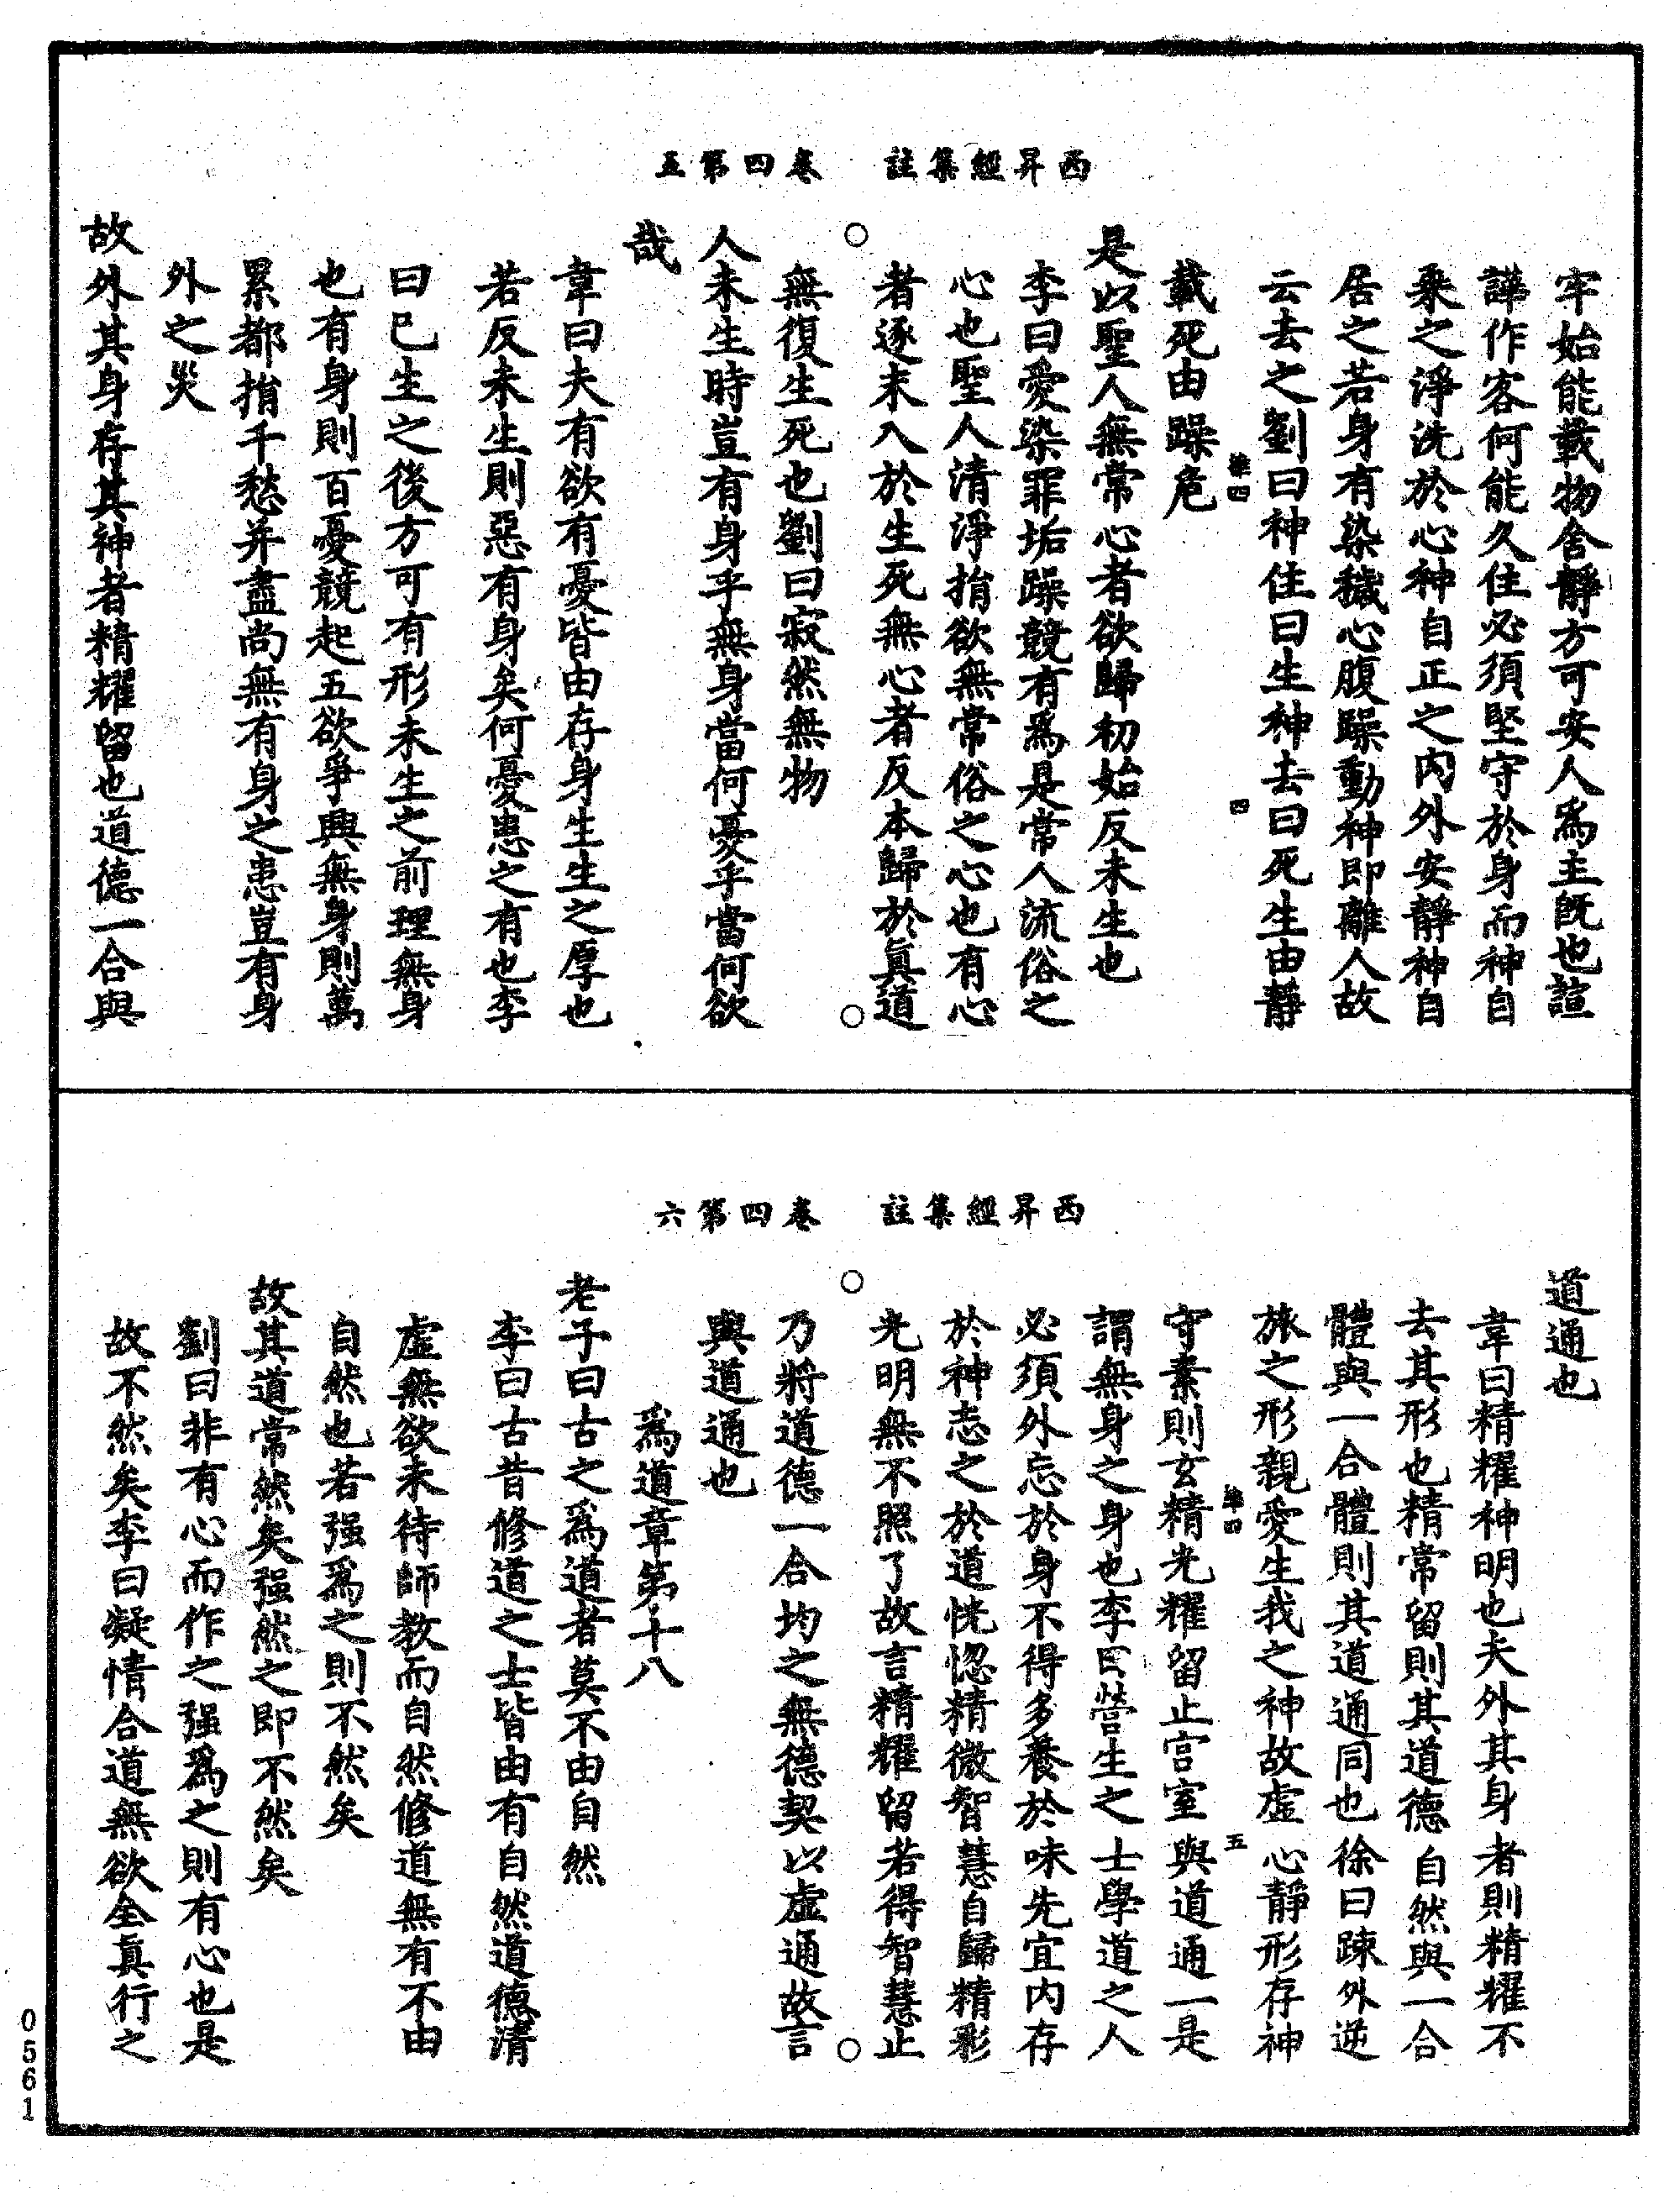 西昇經集註　卷四第五
牢始能載物舍靜方可安人爲主旣也諠
譁作客何能久住必須堅守於身而神自
乗之淨洗於心神自正之內外安靜神自
居之若身有染穢心腹躁動神即離人故
云去之劉曰神住曰生神去曰死生由靜
染四　四
載死由躁危
是以聖人無常心者欲歸初始反未生也
李曰愛染罪垢躁競有爲是常人流俗之
心也聖人清淨捐欲無常俗之心也有心
者逐末入於生死無心者反本歸於眞道
無復生死也劉曰寂然無物
人未生時豈有身乎無身當何憂乎當何欲
哉
韋曰夫有欲有憂皆由存身生生之厚也
若反未生則惡有身矣何憂患之有也李
曰已生之後方可有形未生之前理無身
也有身則百憂競起五欲爭興無身則萬
累都捐千愁并盡尚無有身之患豈有身
外之災
故外其身存其神者精耀留也道德一合與
西昇經集註　卷四第六
道通也
韋曰精耀神明也夫外其身者則精耀不
去其形也精常留則其道德自然與一合
體與一合體則其道通同也徐曰踈外逆
旅之形親愛生我之神故虛心靜形存神
染四　五
守素則玄精光耀留止宫室與道通一是
謂無身之身也李曰營生之士學道之人
必須外忘於身不得多養於味先宜內存
於神志之於道恍惚精微智慧自歸精彩
光明無不照了故言精耀留若得智慧止
乃將道德一合均之無德契以虛通故言
與道通也
爲道章第十八
老子曰古之爲道者莫不由自然
李曰古昔修道之士皆由有自然道德清
虛無欲未待師教而自然修道無有不由
自然也若强爲之則不然矣
故其道常然矣强然之即不然矣
劉曰非有心而作之强爲之則有心也是
故不然矣李曰凝情合道無欲全眞行之
0561